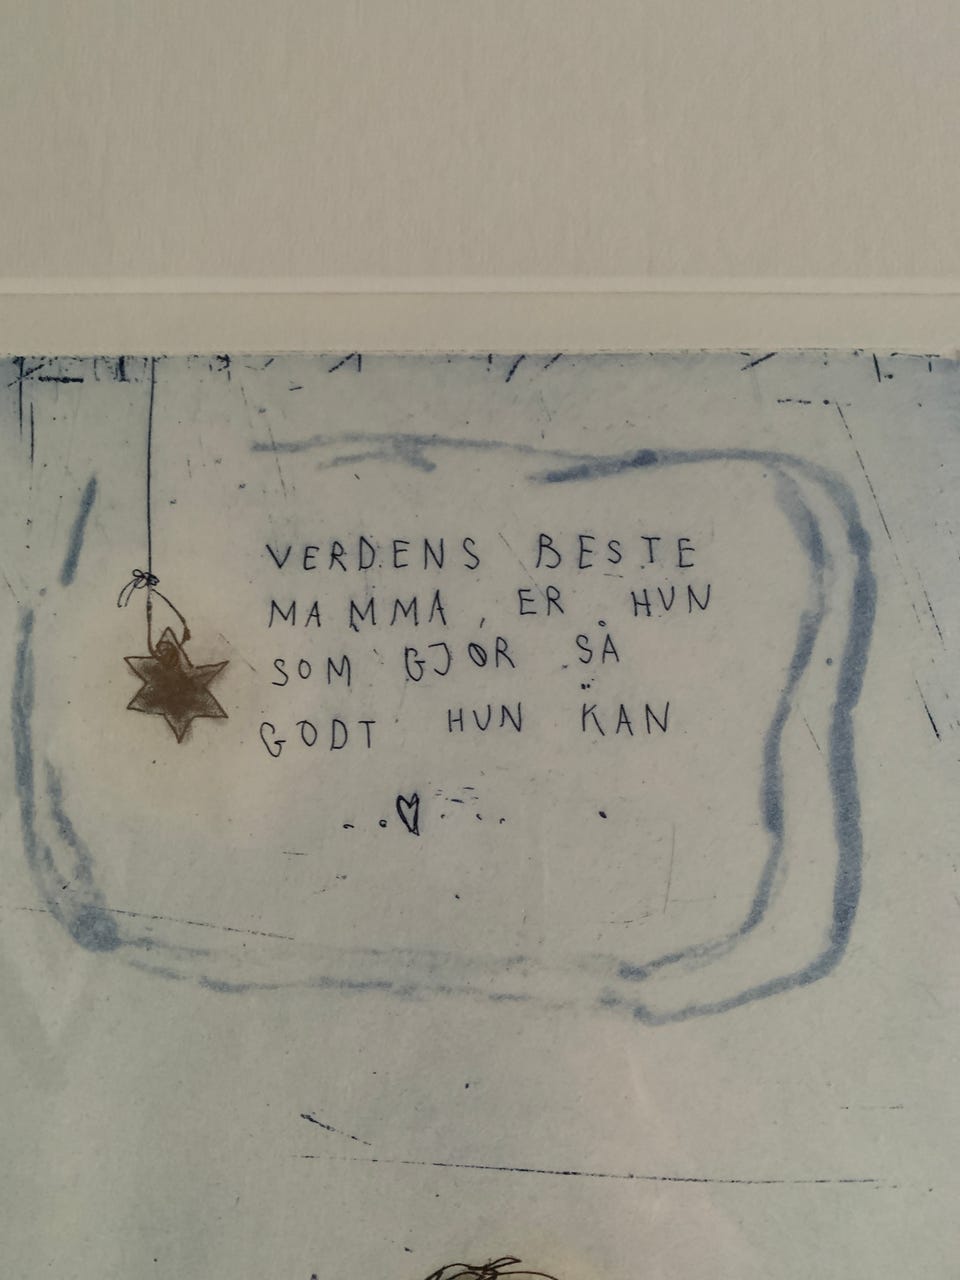 VERDENS BESTE
MAMMA, ER HUN
SOM GJØR SÅ
GODT HUN KAN